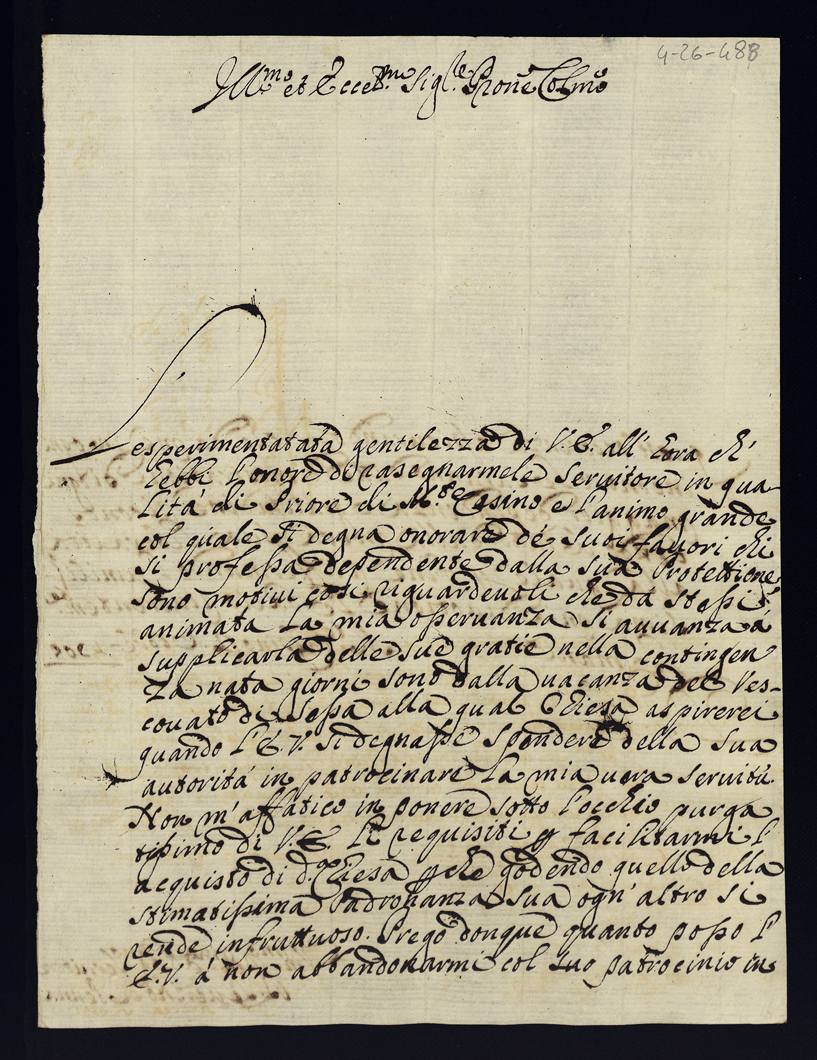 4-26-488
Ill.mo et Eccel.mo Sig.re Prone Colmo
L'esperimentatata gentilezza di V.E. all' hora ch'
hebbi l'honore di rasegnarmele servitore in qua-
lità di Priore di M.te Casino e l'animo grande
col quale si degna onorare de suoi favori chi
si professa dependente dalla sua Protettione
sono motivi così riguardevoli che da stessi
animata la mia osservanza si avvanza à
supplicarla delle sue gratie nella contingen
za nata giorni sono dalla vacanza del Ves-
covato di Sessa alla qual Chiesa aspirerei
quando l'E.V. si degnasse spendere della sua
autorità in patrocinare la mia vera servitù
Non m'affatico in ponere sotto l'occhio purga
tissimo di V.E. li requisiti p facilitarmi l'
acquisto di d.a Chiesa p che godendo quello della
stimatissima Padronanza sua ogn' altro si
rende infruttuoso. Prego donque quanto posso l'
E.V. à non abbandonarmi col suo patrocinio in